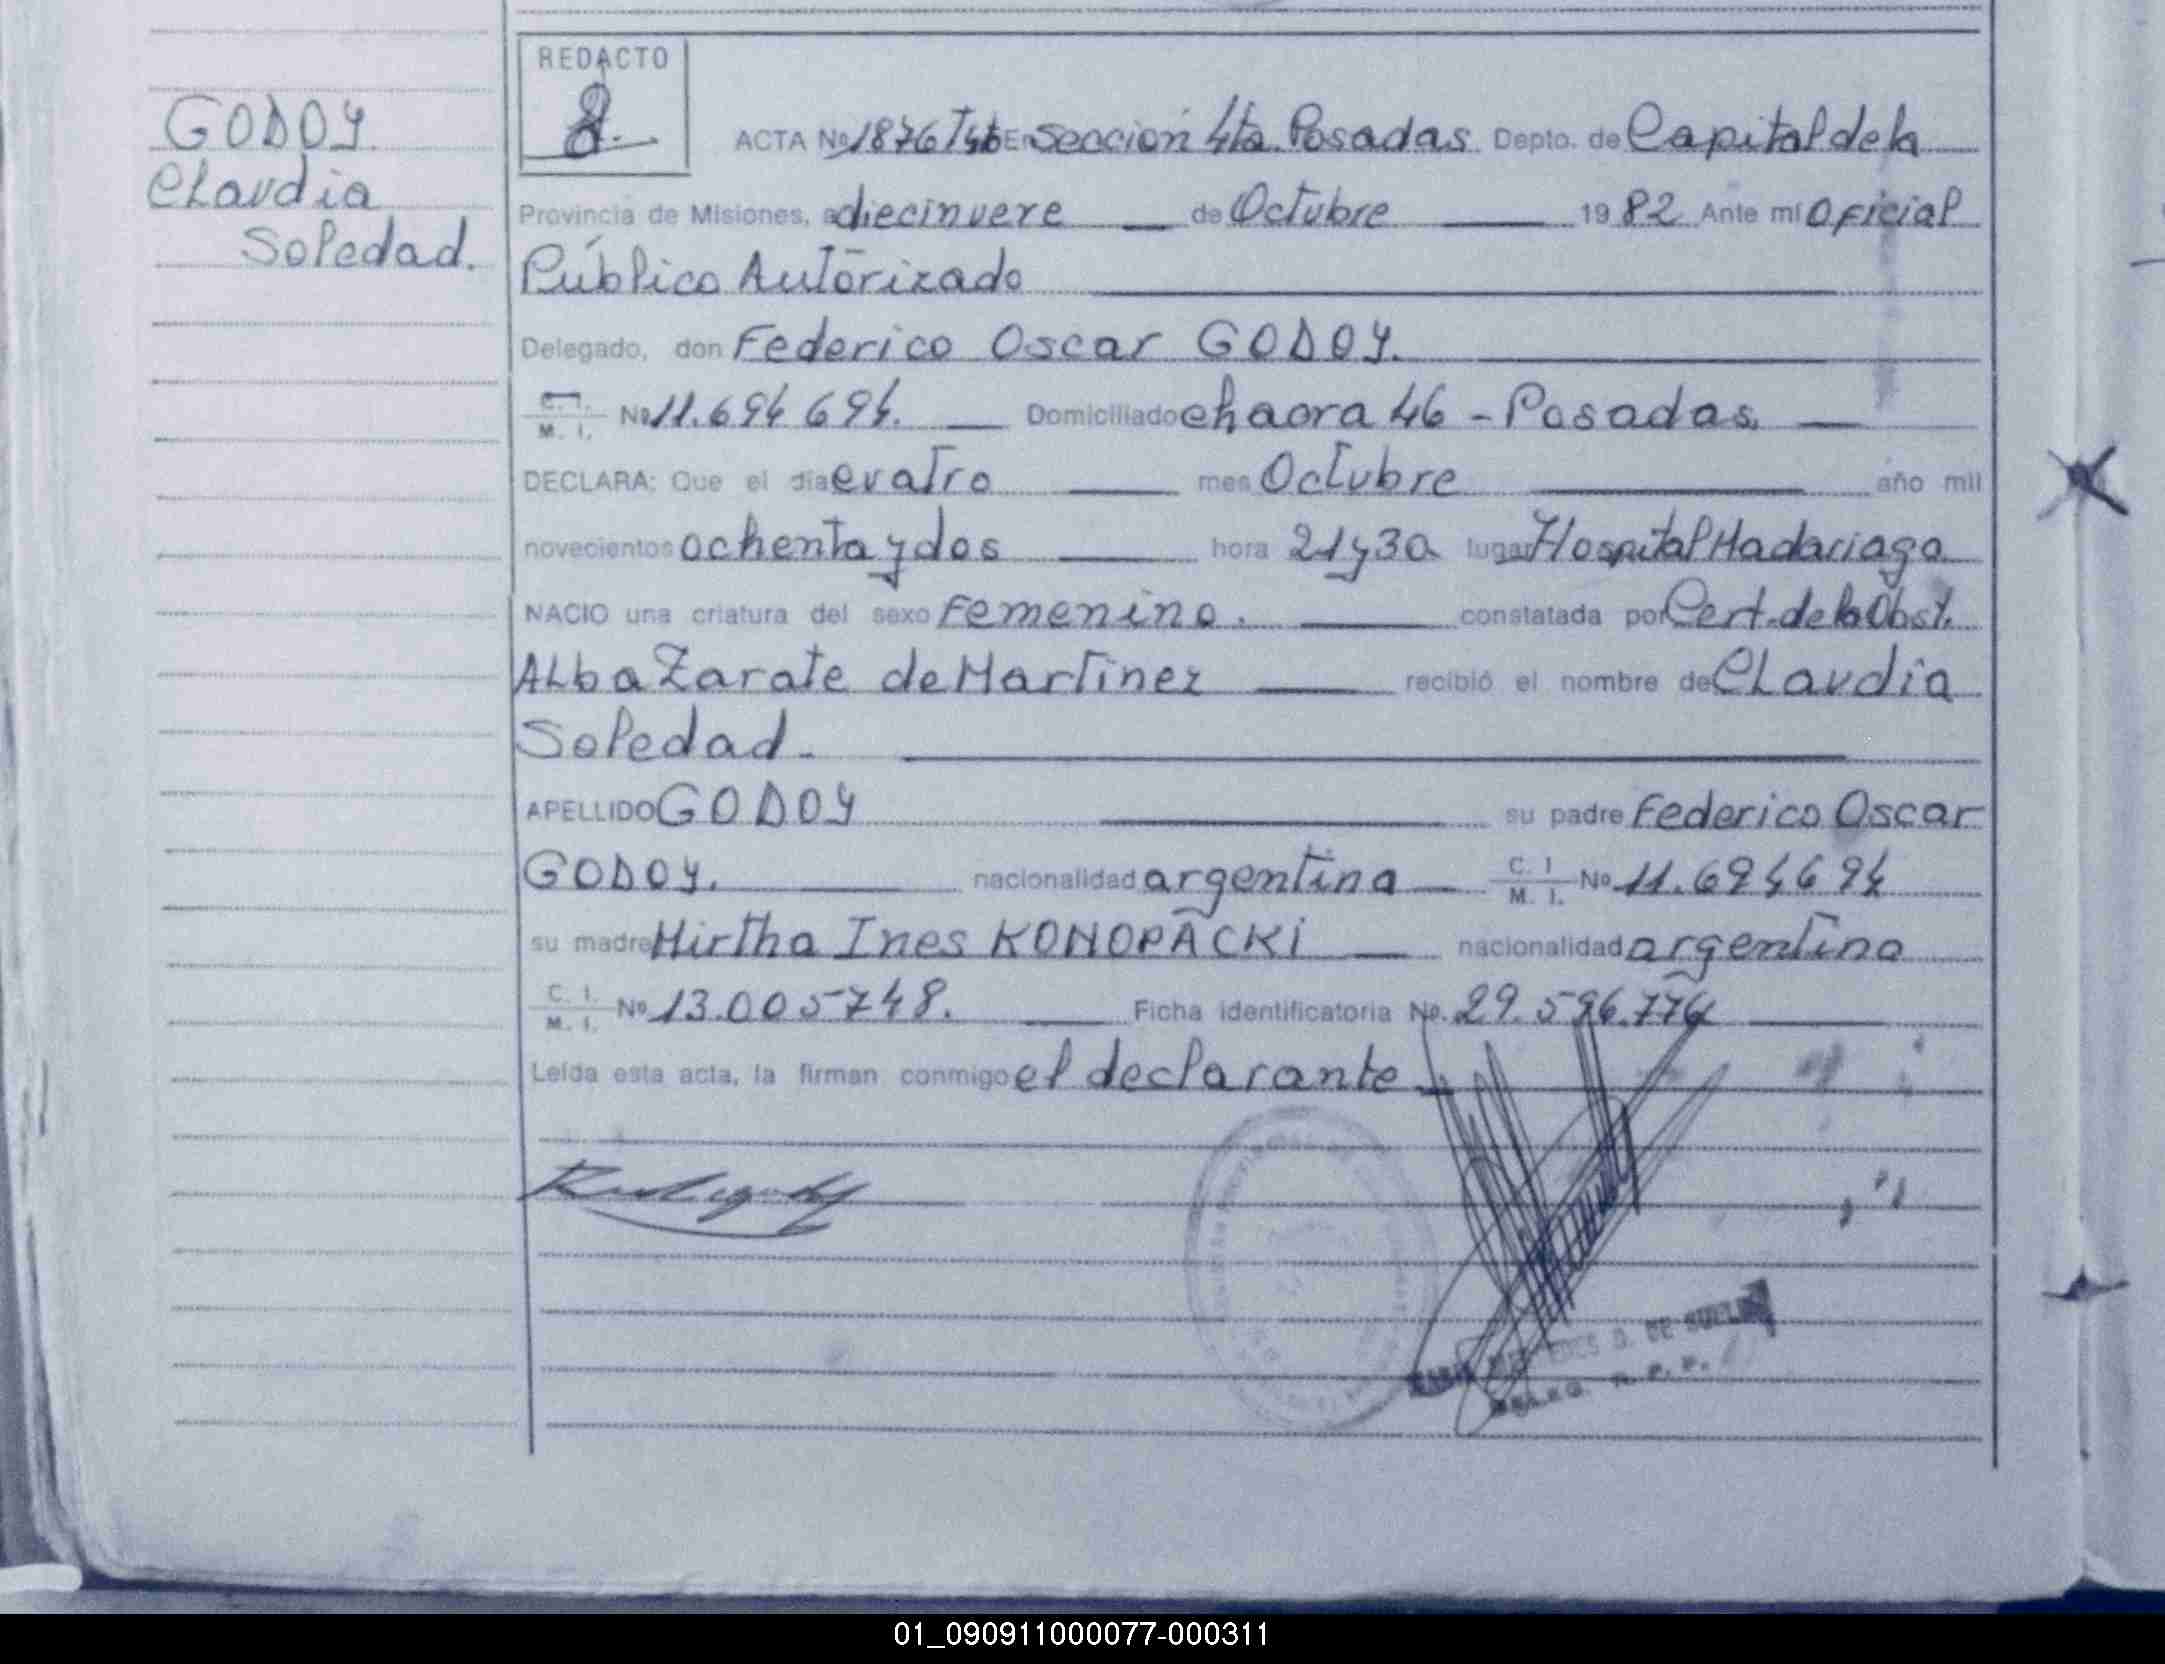 GODOY
Claudia
Soledad.
REDACTO
ACTA Nº 1876 T4b En Sección 4ta. Posadas Depto. de Capital de la
Provincia de Misiones, a diecinueve de Octubre 1982 Ante mí Oficial
Público Autorizado
Delegado, don Federico Oscar GODOY.
C. I. M. I. Nº 11.694 694. Domiciliado chacra 46 - Posadas.
DECLARA: Que el día cuatro mes Octubre año mil
novecientos ochenta y dos hora 21 y 30 lugar Hospital Madariaga
NACIO una criatura del sexo Femenino. constatada por Cert. de la Obst.
Alba Zarate de Martinez recibió el nombre de Claudia
Soledad.
APELLIDO GODOY su padre Federico Oscar
GODOY. nacionalidad argentina C. I. M. I. Nº 11.694694
su madre Mirtha Ines KONOPACKI nacionalidad argentina
C. I. M. I. Nº 13.005748. Ficha identificatoria Nº. 29.596.774
Leída esta acta, la firman conmigo el declarante
01_090911000077-000311